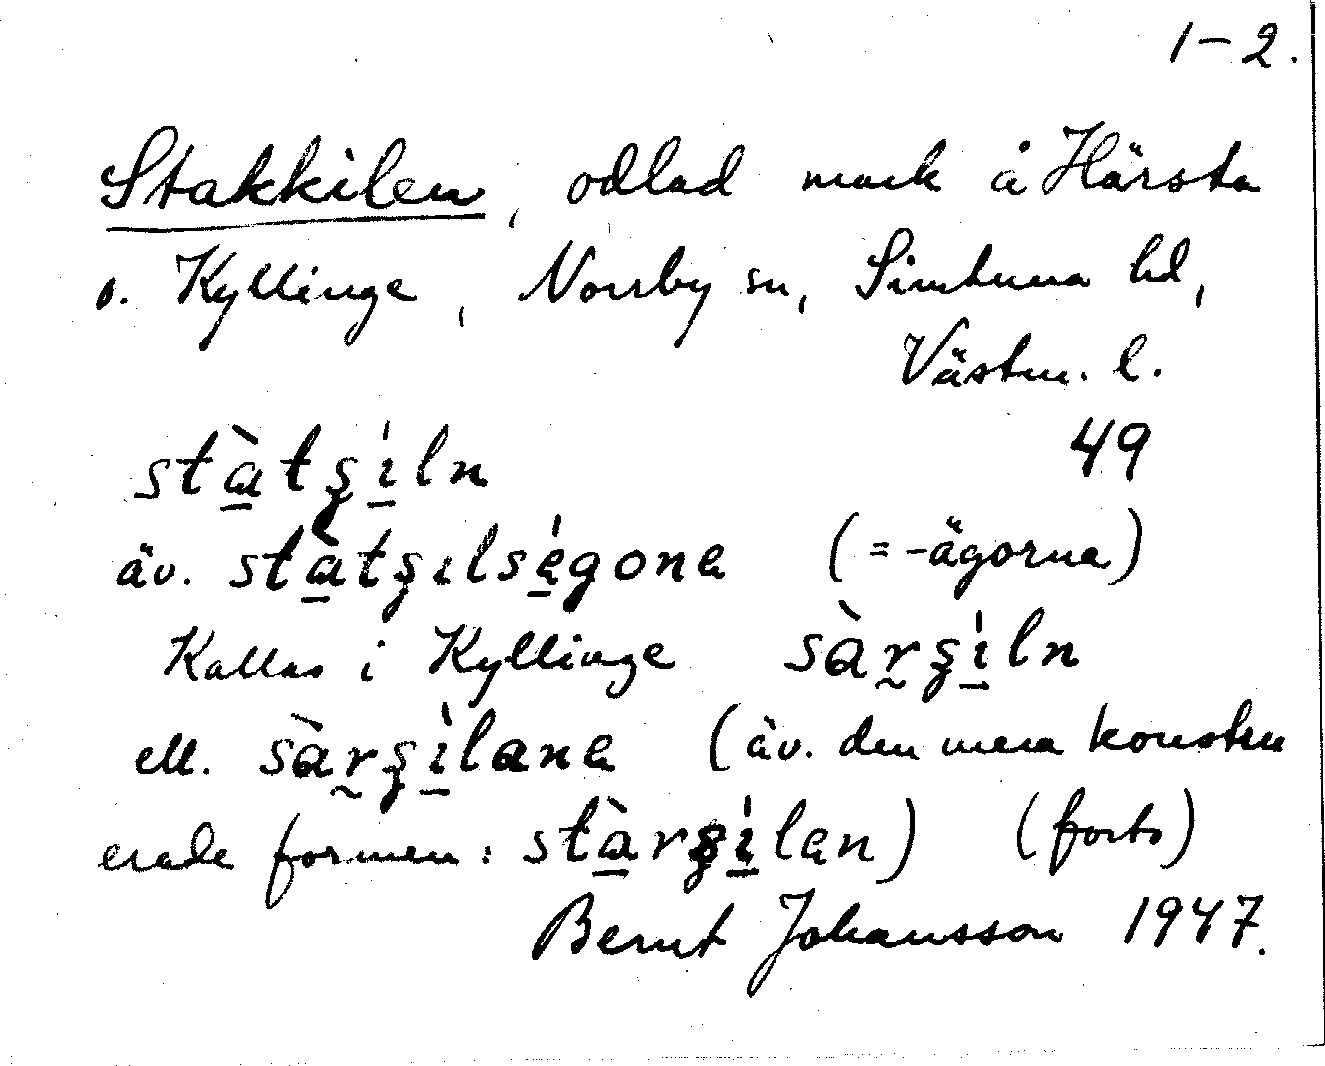 1-2.
Stakkilen, odlad mark å Härsta
o. Kyllinge, Norrby sn, Simtuna hd,
Västm. l.
stàtʂíln 49
äv. stàtʂılségone (= -ägorna)
Kallas i Kyllinge sàrʂíln
ell. sàrʂìlane (äv. den mera konstru
erade formen: stàrʂílen) (forts)
Bernt Johansson 1947.